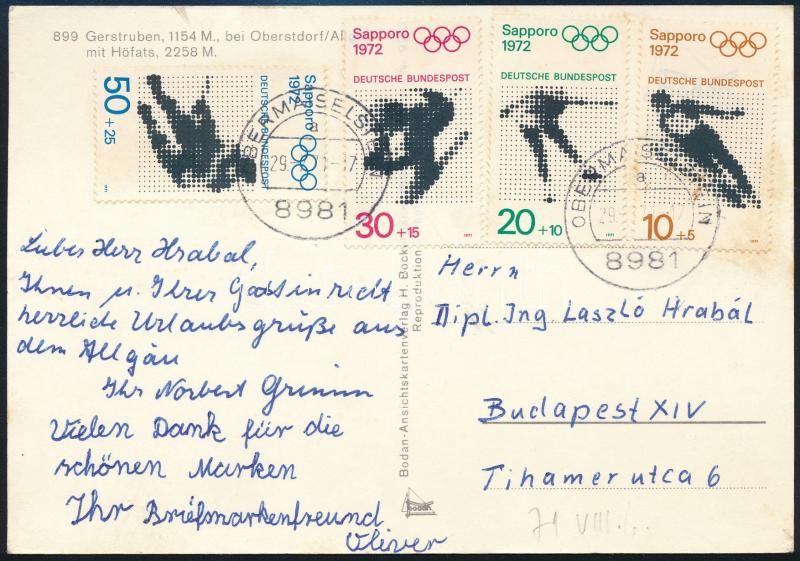 899 Gerstruben, 1154 M., bei Oberstdorf/Al
mit Höfats, 2258 M.
50 +25
Sapporo
1972
DEUTSCHE BUNDESPOST
1971
Sapporo
1972
DEUTSCHE BUNDESPOST
30 +15
1971
Sapporo
1972
DEUTSCHE BUNDESPOST
20 +10
1971
Sapporo
1972
DEUTSCHE BUNDESPOST
10 +5
1971
OBERMAISELSTEIN
a
8981
OBERMAISELSTEIN
a
8981
Liebes Herr Hrabal,
Ihnen u. Ihrer Gattin recht
herrliche Urlaubsgrüße aus
dem Allgäu
Ihr Norbert Grimm
Vielen Dank für die
schönen Marken
Ihr Briefmarkenfreund
Oliver
Bodan-Ansichtskartenverlag H. Bock
Reproduktion
bodan
Herrn
Dipl. Ing. Laszló Hrabál
Budapest XIV
Tihamer utca 6
71 VIII.